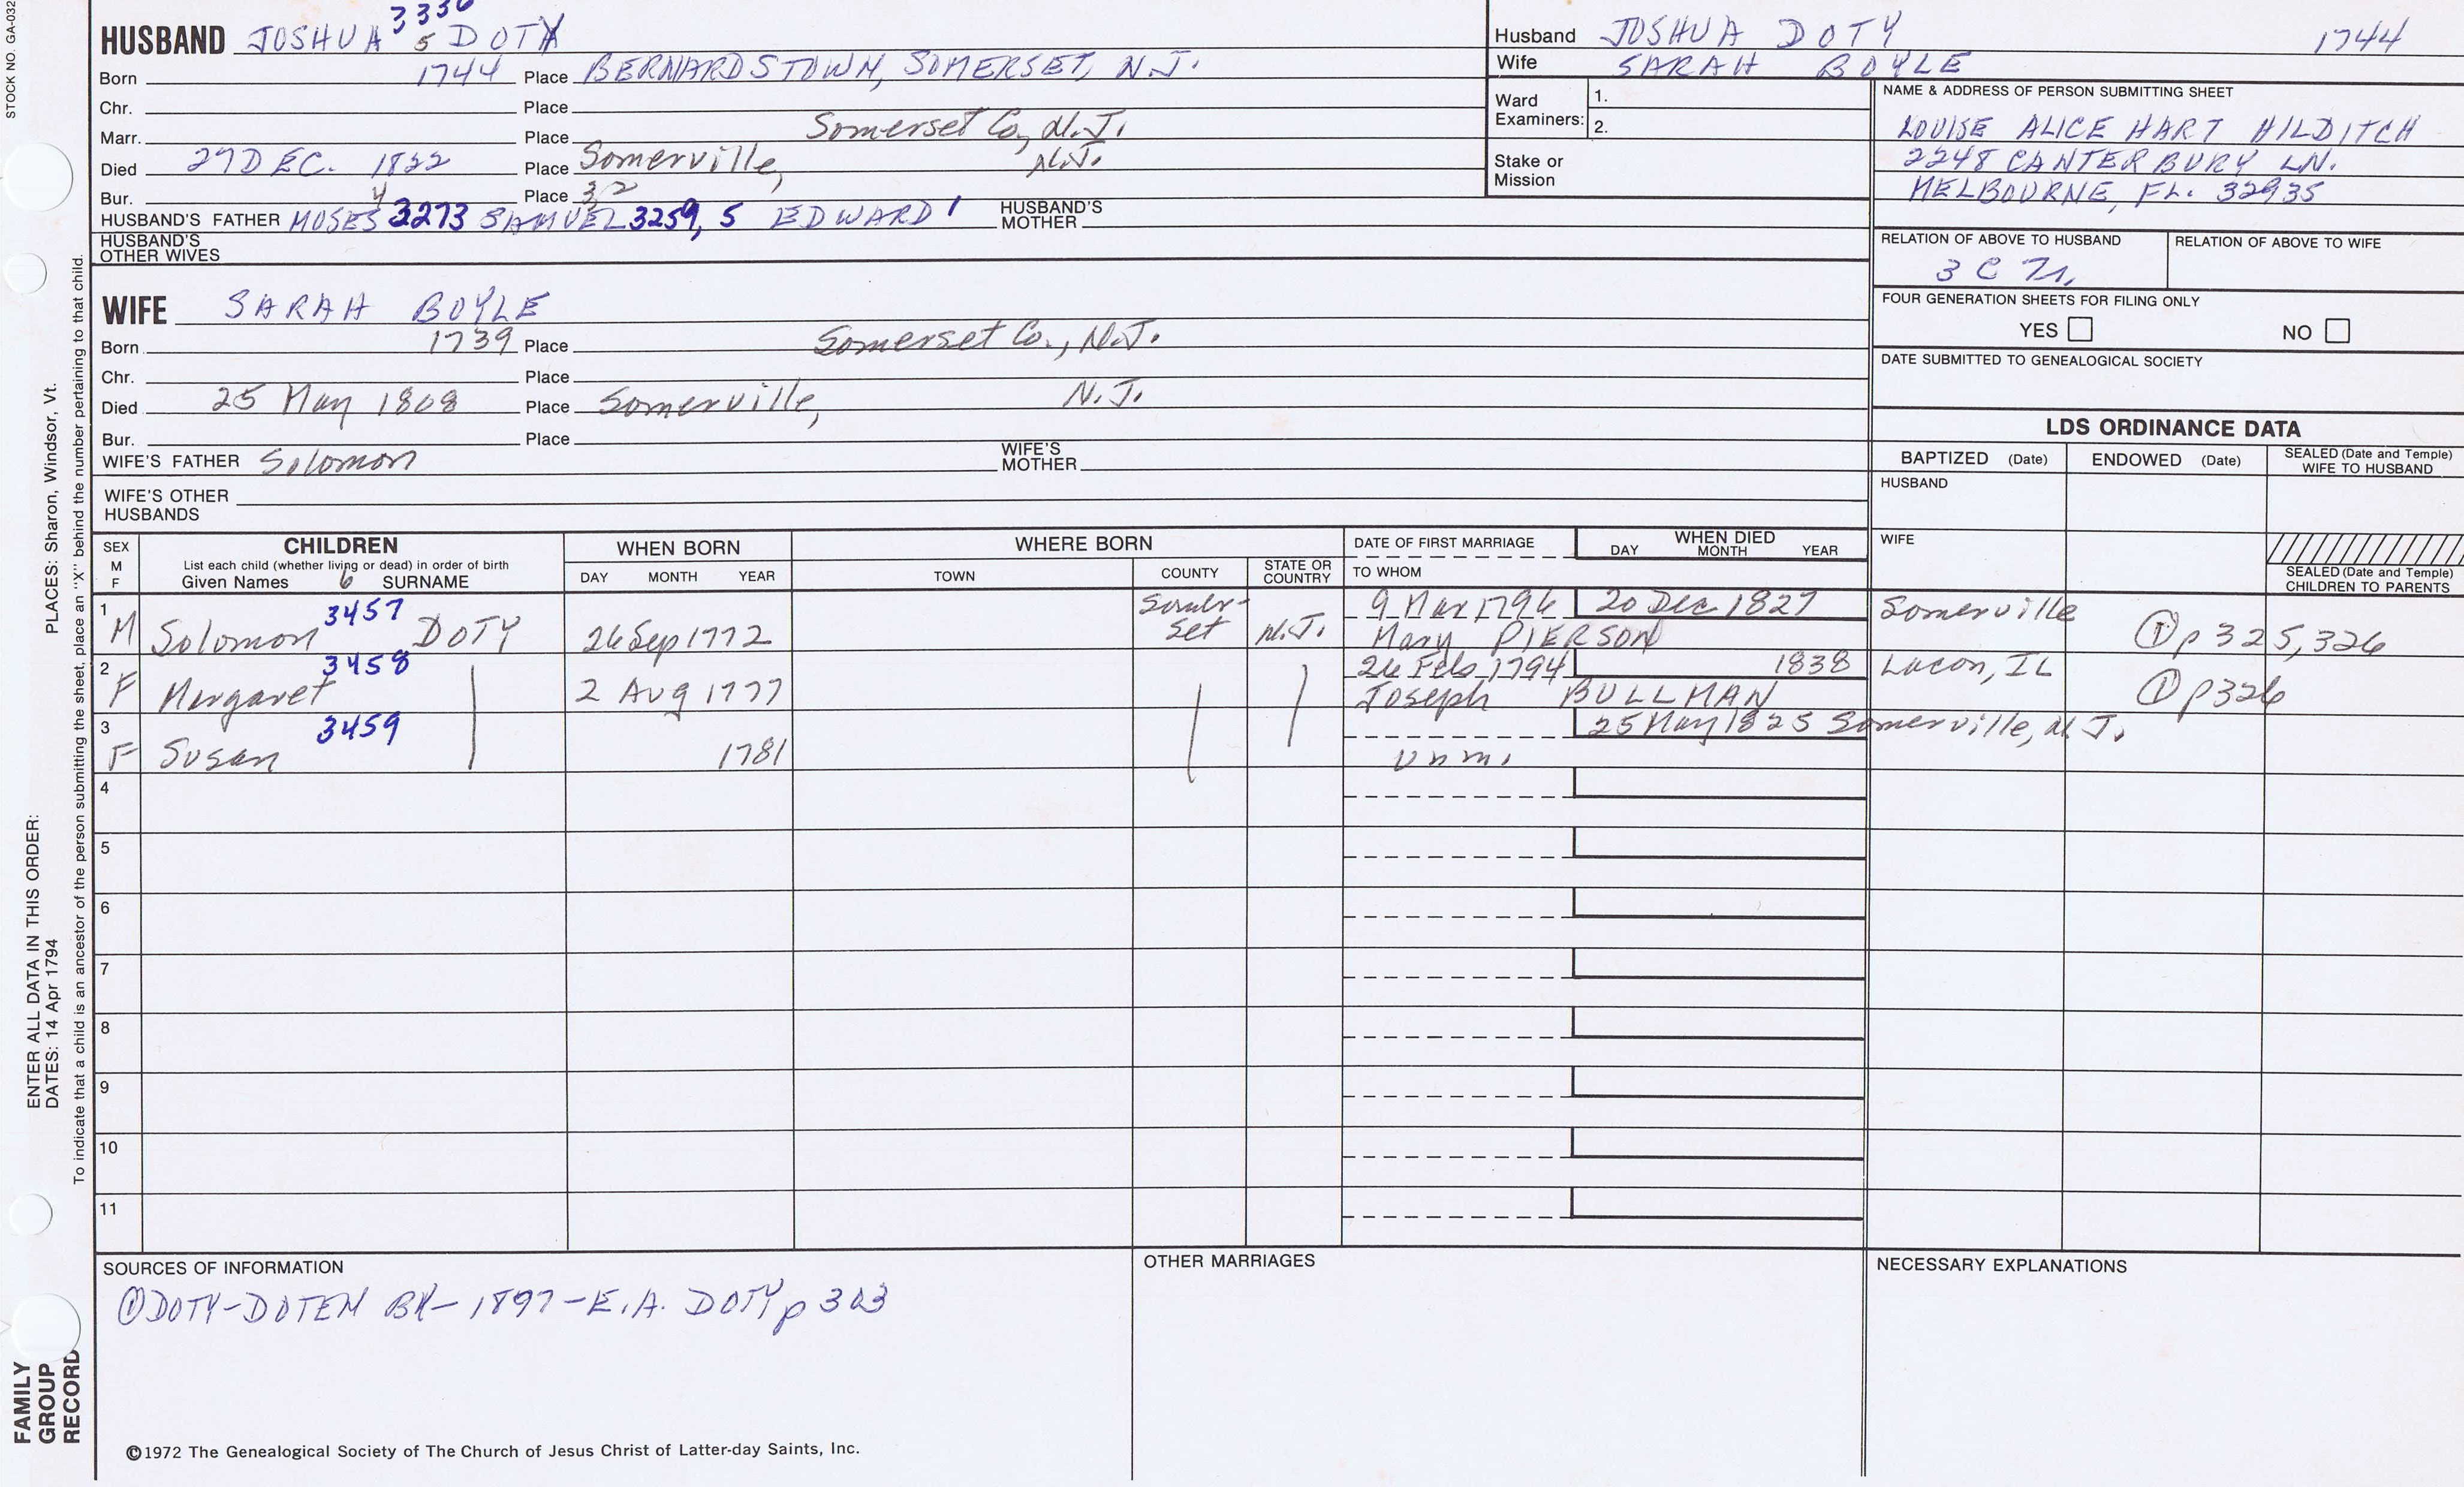 STOCK NO. GA-032
HUSBAND JOSHUA 5 DOTY
Born 1744 Place BERNARDSTOWN, SOMERSET, N.J.
Chr. Place
Marr. Place Somerset Co, N.J.
Died 27 DEC. 1822 Place Somerville, N.J.
Bur. Place
HUSBAND'S FATHER MOSES 4 3273 SAMUEL 32 3259, 5 EDWARD 1 HUSBAND'S MOTHER
HUSBAND'S OTHER WIVES
Husband JOSHUA DOTY 1744
Wife SARAH BOYLE
Ward Examiners: 1.
2.
Stake or Mission
NAME & ADDRESS OF PERSON SUBMITTING SHEET
LOUISE ALICE HART HILDITCH
2248 CANTERBURY LN.
MELBOURNE, FL. 32935
RELATION OF ABOVE TO HUSBAND RELATION OF ABOVE TO WIFE
3 C
FOUR GENERATION SHEETS FOR FILING ONLY
YES NO
DATE SUBMITTED TO GENEALOGICAL SOCIETY
WIFE SARAH BOYLE
Born 1739 Place Somerset Co., N.J.
Chr. Place
Died 25 May 1808 Place Somerville, N.J.
Bur. Place
WIFE'S FATHER Solomon WIFE'S MOTHER
WIFE'S OTHER HUSBANDS
LDS ORDINANCE DATA
BAPTIZED (Date) ENDOWED (Date) SEALED (Date and Temple) WIFE TO HUSBAND
HUSBAND
WIFE
SEALED (Date and Temple) CHILDREN TO PARENTS
SEX M F
CHILDREN
List each child (whether living or dead) in order of birth
Given Names 6 SURNAME
WHEN BORN
DAY MONTH YEAR
WHERE BORN
TOWN COUNTY STATE OR COUNTRY
DATE OF FIRST MARRIAGE
TO WHOM
WHEN DIED
DAY MONTH YEAR
1 M Solomon 3457 DOTY 26 Sep 1772 Somer-set N.J. 9 Mar 1796 20 Dec 1827 Somerville
Mary PIERSON ① p 325, 326
2 F Margaret 3458 2 Aug 1777 26 Feb 1794 1838 Lacon, IL
Joseph BULLMAN ① p326
3 F Susan 3459 1781 25 May 1825 Somerville, N.J.
Unm.
4
5
6
7
8
9
10
11
SOURCES OF INFORMATION
① DOTY-DOTEN BK- 1897-E.A. DOTY p 303
OTHER MARRIAGES
NECESSARY EXPLANATIONS
©1972 The Genealogical Society of The Church of Jesus Christ of Latter-day Saints, Inc.
PLACES: Sharon, Windsor, Vt.
To indicate that a child is an ancestor of the person submitting the sheet, place an "X" behind the number pertaining to that child.
ENTER ALL DATA IN THIS ORDER:
DATES: 14 Apr 1794
FAMILY
GROUP
RECORD